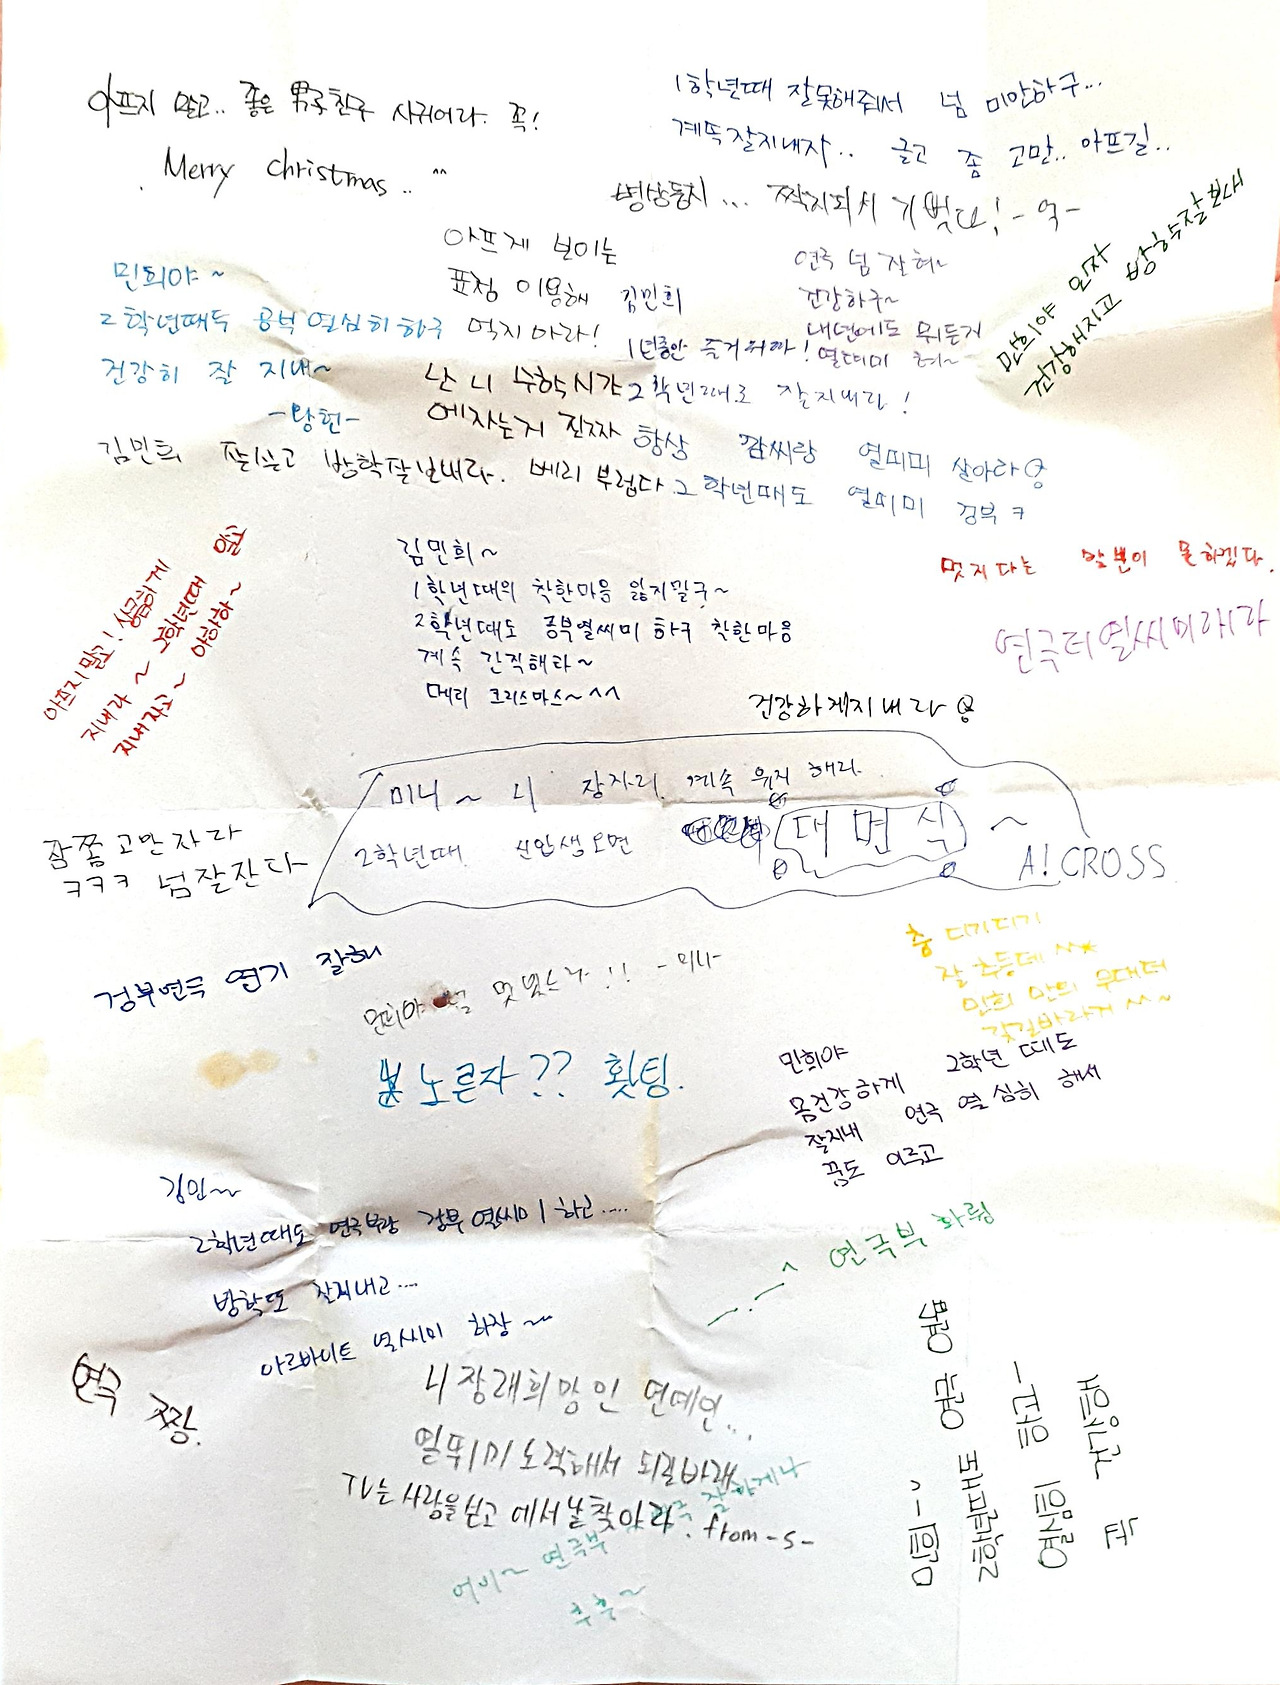 아프지 말고.. 좋은 男子친구 사귀어라. 꼭!
Merry christmas.. ^^
1학년때 잘못해줘서 넘 미안하구...
계뚝잘지내자.. 글고 좀 고만.. 아프길..
병상동지... 짝지되서 기뻤다!
민희야 민자
건강해지고 방학두잘보내
아프게 보이는
표정 이용해
먹지마라!
난 니 수학시간
에자는거 진짜
베리 부럽다.
연극 넘 잘혀~
건강하구~
내년에도 뭐든지
열띠미 혀~
민희야~
2학년때두 공부열심히하구
건강히 잘 지내~
김민희
1년동안 즐거워따!
2학년때도 잘지내라!
항상 깜씨랑 열띠미 살아라
2학년때도 열띠미 경부 ㅋ
김민희 잘살고 방학잘보내라.
아프지말고! 상큼하게
지내라~ 2학년때
지내자고~ 야하하~
김민희~
1학년때의 착한마음 잃지말구~
2학년때도 공부열씨미 하구 착한마음
계속 간직해라~
메리 크리스마스~^^
멋지다는 말뿐이 못하겠다.
연극더열씨미해라
건강하게지내라
미니~ 니 장자리 계속 유지 해라.
2학년때 신입생오면 대면식~
A! CROSS
잠쫌고만자라
ㅋㅋㅋ 넘잘잔다
경부연극 연기 잘해
민희야 널 못잊는다!! -미나-
춤 디기디기
잘 추등데 ^^*
민희 만의 무대더
갖길바라게 ^^~
노른자?? 홧팅.
민희야
몸건강하게
잘지내
2학년 때도
연극 열심히 해서
꿈도 이루고
김민~
2학년때도 연극부랑 경부 열씨미하고....
방학또 잘지내고...
아르바이트 열씨미 하장~
연극부 화륑
연극 짱.
니 장래희망인 연예인...
열뚜미 노력해서 되길바래
TV는 사랑을싣고 에서날찾아라. from-s-
연극부
추후~